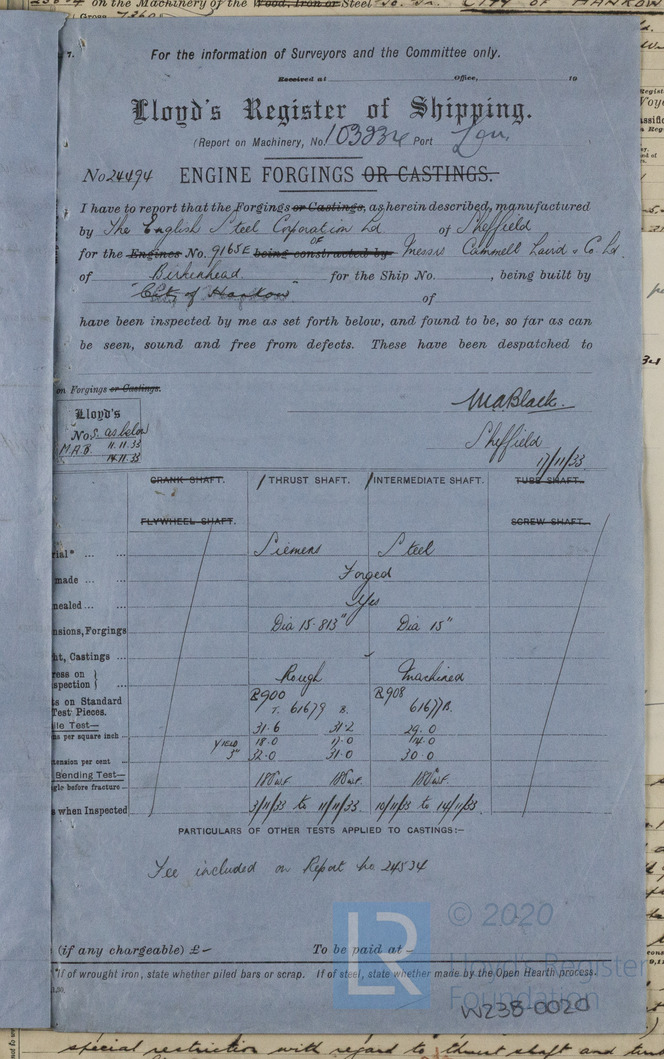 on the Machinery of the Wood, Iron or Steel CITY OF HANKOW
Gross 7360
7.
For the information of Surveyors and the Committee only.
Received at Office, 19
Lloyd's Register of Shipping.
(Report on Machinery, No. 103834 Port Lon.
No 24494 ENGINE FORGINGS OR CASTINGS.
I have to report that the Forgings or Castings, as herein described, manufactured
by The English Steel Corporation Ld of Sheffield
for the Engines No. 9165E being constructed by OF Messrs Cammell Laird & Co Ld.
of Birkenhead for the Ship No. , being built by
"City of Hankow" of
have been inspected by me as set forth below, and found to be, so far as can
be seen, sound and free from defects. These have been despatched to
on Forgings or Castings.
Lloyd's
Nos. as below
M.A.B. 11.11.33
14.11.33
M A Black.
Sheffield
17/11/33
CRANK SHAFT. / THRUST SHAFT. / INTERMEDIATE SHAFT. TUBE SHAFT.
FLYWHEEL SHAFT. SCREW SHAFT.
rial* ... ... Siemens Steel
made ... ... Forged
nealed ... ... Yes
nsions, Forgings Dia 15.813" Dia 15"
ht, Castings ...
ress on
spection } ... Rough Machined
ts on Standard
Test Pieces. 8900 8908
T. 61679 B. 61677B.
ile Test—
ns per square inch ... 31.6 31.2 29.0
YIELD 18.0 17.0 14.0
tension per cent 3" 32.0 31.0 30.0
Bending Test—
gle before fracture — 180° u.f. 180° u.f. 180° u.f.
s when Inspected 3/11/33 to 11/11/33. 10/11/33 to 14/11/33.
PARTICULARS OF OTHER TESTS APPLIED TO CASTINGS:—
Fee included on Report No 24534
(if any chargeable) £ — To be paid at —
*If of wrought iron, state whether piled bars or scrap. If of steel, state whether made by the Open Hearth process.
LR
© 2020
Lloyd's Register
Foundation
W238-0020
special restriction with regard to thrust shaft and